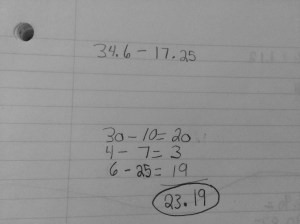 34.6 - 17.25
30 - 10 = 20
4 - 7 = 3
6 - 25 = 19
23.19